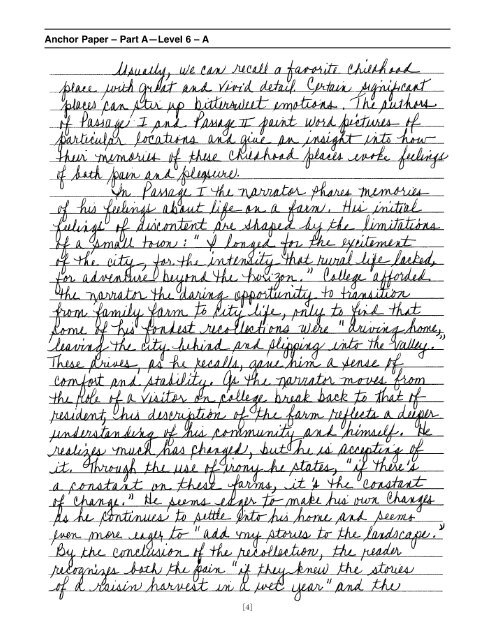 Anchor Paper – Part A—Level 6 – A
Usually, we can recall a favorite childhood
place with great and vivid detail. Certain significant
places can stir up bittersweet emotions. The authors
of Passage I and Passage II paint word pictures of
particular locations and give an insight into how
their memories of these childhood places evoke feelings
of both pain and pleasure.
In Passage I the narrator shares memories
of his feelings about life on a farm. His initial
feelings of discontent are shaped by the limitations
of a small town: "I longed for the excitement
of the city, for the intensity that rural life lacked,
for adventure beyond the horizon." College afforded
the narrator the daring opportunity to transition
from family farm to city life, only to find that
some of his fondest recollections were "driving home,
leaving the city behind and slipping into the valley."
These drives, as he recalls, gave him a sense of
comfort and stability. As the narrator moves from
the role of a visitor on college break back to that of
resident, his description of the farm reflects a deeper
understanding of his community and himself. He
realizes much has changed, but he is accepting of
it. Through the use of irony he states, "if there's
a constant on these farms, it's the constant
of change." He seems eager to make his own changes
as he continues to settle into his home and seems
even more eager to "add my stories to the landscape."
By the conclusion of the recollection, the reader
recognizes both the pain "if they knew the stories
of a raisin harvest in a wet year" and the
[4]